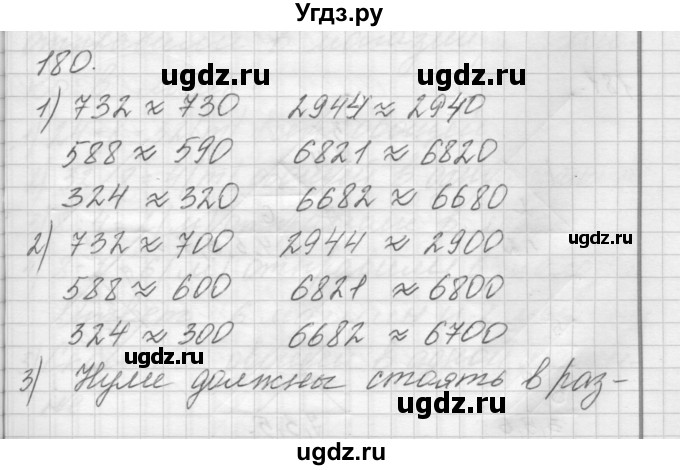 Угдз.ру
180.
ugdz.ru ugdz.ru
1) 732 ≈ 730 2944 ≈ 2940
588 ≈ 590 6821 ≈ 6820
324 ≈ 320 6682 ≈ 6680
ugdz.ru
2) 732 ≈ 700 2944 ≈ 2900
588 ≈ 600 6821 ≈ 6800
324 ≈ 300 6682 ≈ 6700
ugdz.ru
3) Нули должны стоять в раз-
ugdz.ru ugdz.ru
ugdz.ru